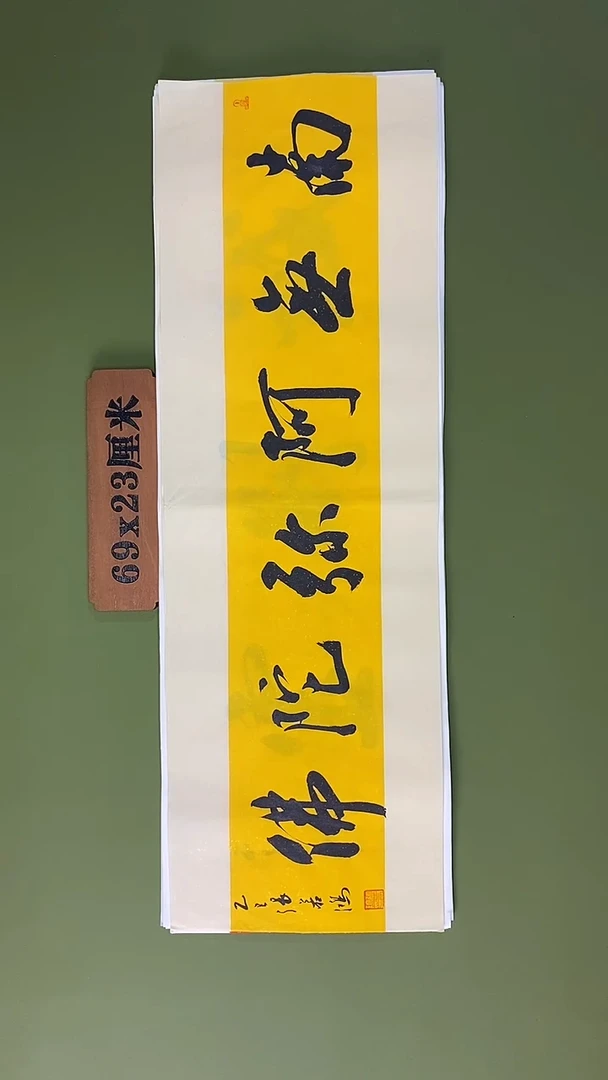 南無阿弥陀佛
乙巳
69x23厘米